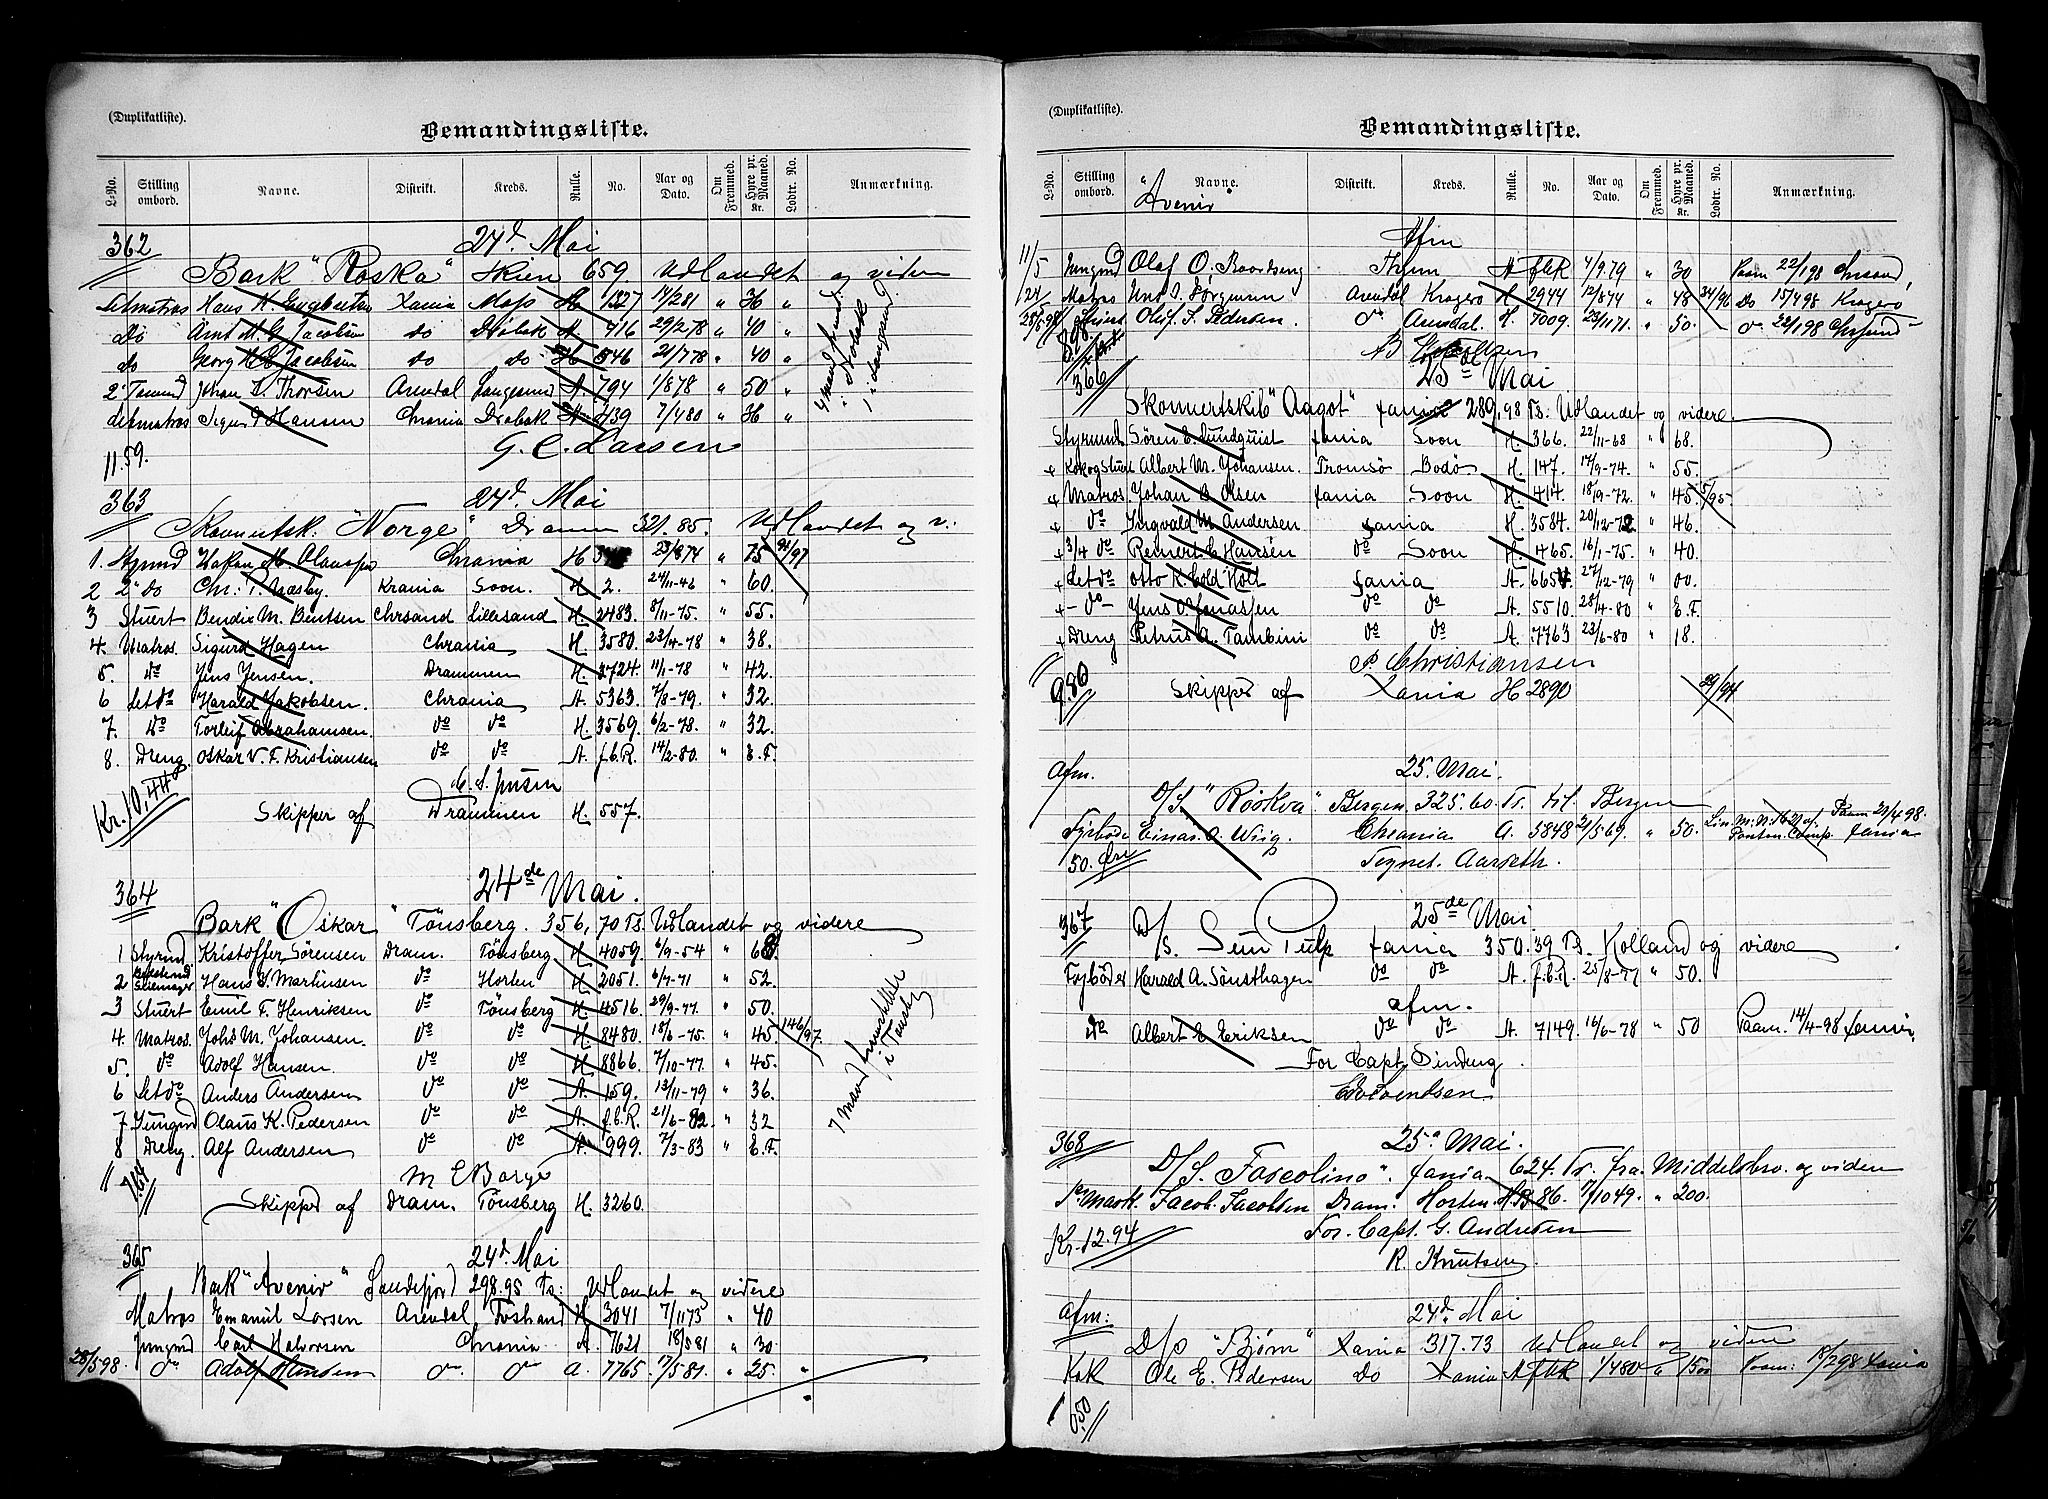 (Duplikatliste).
Bemandingsliste.
L-No. Stilling ombord. Navne. Distrikt. Kreds. Rulle. No. Aar og Dato. Om Fremmed. Hyre pr. Maaned. Kr. Lodtr. No. Anmærkning.
362 24d. Mai
Bark "Roska" Skien 659 Udlandet og videre
Letmatros Hans Xania Moss 1327 14/281 " 36 "
Do Arnt M. G. Jacobsen do Drøbak A 416 29/278 " 40 "
do Georg Jacobsen do do H 546 21/778 " 40 "
2 Johan L. Thorsen Arendal Langesund A. 794 1/878 " 50 "
Letmatros Hansen Chrania Drøbak A. 439 7/480 " 36 "
11.59. G. C. Larsen
363 24d. Mai
"Norge" Dramm 321.85. Udlandet og v.
1. Styrmd Chrania H 23/874 " 75 94/97
2 2d do Chr. T. Næsby. Krania Soon. H 2. 24/11-46 " 60.
3 Stuert Bendix M. Bentsen Chrsand Lillesand H. 2483. 8/11-75. " 55.
4. Matros. Sigurd Hagen Chrania H. 3580. 23/4-78 " 38.
5. do Jens Jensen. Drammen H. 3724. 11/1-78 " 42.
6 Letdo Harald Jakobsen. Chrania A. 5363 7/8-79. " 32.
7. do Torleif Abrahamsen. do do H. 3569. 6/2-78. " 32.
8. Dreng. Oskar V. F. Kristiansen do do A. f.b.R. 14/2-80. " E.F.
Kr. 10,44 C. S. Jensen
Skipper af Drammen H. 557.
364 24de Mai.
Bark "Oskar" Tönsberg. 356,70 Ts. Udlandet og videre
1 Styrmd Kristoffer Sørensen Dram. Tönsberg H. 4059. 6/9-54 " 68.
2 Hans S. Martinsen do Horten H. 2051. 6/7-71 " 52.
3 Stuert Emil F. Henriksen do Tönsberg H. 4516. 29/9-77. " 50.
4. Matros. Johs M. Johansen. do do H. 8480. 18/6-75. " 45. 146/97
5. do Adolf Hansen. do do H. 8866. 7/10-77. " 45.
6 Letdo Anders Andersen do do A. 159. 13/11-79 " 36.
7 Jungmd Olaus K. Pedersen do do A. f.b.R. 21/6-82. " 32
8 Dreng. Alf Andersen do do A. 999. 7/3-83 " E.F.
7 Mand i Tønsbg
7.64 M E Borge
Skipper af Dram. Tönsberg H. 3260.
365 24d. Mai
Bark "Avenir" Sandefjord 298.95 Ts: Udlandet og videre
Matros Emanuel Larsen Arendal H. 3041 7/1173 " 40
Jungmd Carl Halvorsen Chrania A. 7621 18/581 " 30
28/598. do Adolf Hansen do do A. 7765. 17/581. " 25. "
(Duplikatliste).
Bemandingsliste.
L-No. Stilling ombord. Navne. Distrikt. Kreds. Rulle. No. Aar og Dato. Om Fremmed. Hyre pr. Maaned. Kr. Lodtr. No. Anmærkning.
"Avenir"
Afm
11/5 Jungmd Olaf O. Thjem A fbR 4/9.79 " 30 Paam 22/198
/24 Matros Knt S. Jørgensen Arendal Kragerø H. 2944 12/874 " 48 34/96 Do 15/498 Kragerø
28/598 Oluf S. Pedersen. do Arendal. H. 7009. 23/1171. " 50. do 22/198
366 25de Mai
Skonnertskib "Aagot" Xania 289,98 Ts: Udlandet og videre
Styrmd Søren E. Lundquist Xania Soon H. 366. 22/11-68 " 68.
+ Kokogstuert Albert M. Johansen. Tromsø Bodø H. 147. 17/9-74. " 55.
+ Matros. Johan B. Olsen Xania Soon H. 414. 18/9-72. " 45 5/95
+ do Ingvald M. Andersen Xania H. 3584. 20/12-72 " 46.
+ 3/4 do Reinert E. Hansen do Soon H. 465. 16/1-75. " 40.
+ Letdo Otto K. Cold Holt Xania A. 665 27/12-79 " 00.
+ -do- Jens O Jonassen do do A. 5510. 28/4-80 " E.F.
+ Dreng Petrus A. Tambini do do A. 7763 23/6-80 " 18.
P. Christiansen
9.80 Skipper af Xania H 2890 29/94
Afm. 25. Mai.
D/S "Röskva" Bergen. 325.60. Ts. til Bergen
Fyrbøder Einar A. Wiig. Chrania A. 5848 21/569. " 50. Paam 29/498. Xania
50. Øre Tegnet. Aarseth.
367 25de Mai
D/S. Sem Xania 350.39 Ts. Holland og videre
Fyrbøder Harald A. Sønsthagen do do A. f.b.R. 25/8-77 " 50.
afm.
do Albert E Eriksen do do A. 7149. 16/6-78 " 50 Paam. 14/4-98 Xania.
For Capt. Dindeng
Svendsen
368 25d Mai.
D/S. "Toscolino". Xania 624. Ts. fra. Middelsbro. og videre
Jacob. Jacobsen Dram. Horten. H.B. 86. 7/1049. " 200.
Kr. 12.94 For. Capt. G. Andresen
R. Knutsen
Afm: 24d. Mai
D/s "Bjørn" Xania 317.73 Udlandet og videre
Kok Ole E. Pedersen Do Xania A fbR 1/480 Paam: 18/298 Xania
0.50